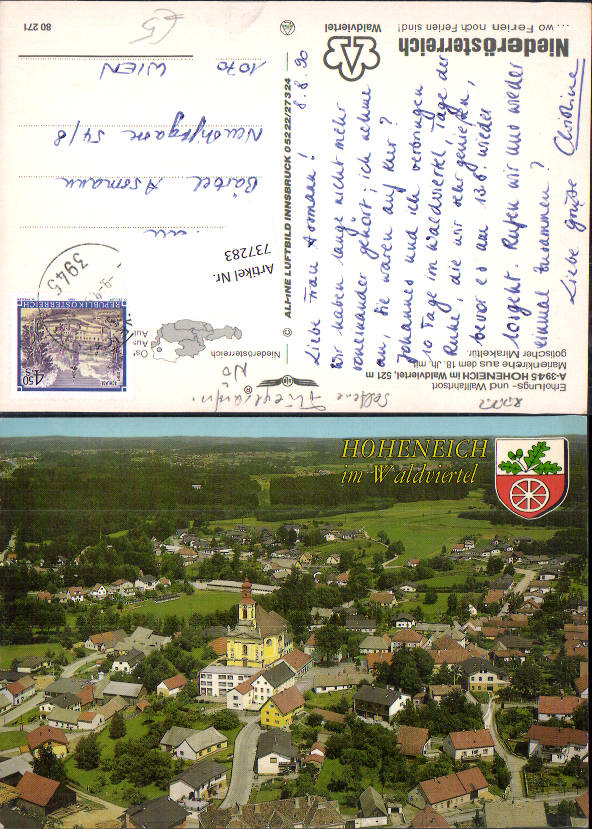 ... wo Ferien noch Ferien sind!
Niederösterreich
Waldviertel
80 271
8.8.90
Liebe Frau Assmann!
Wir haben lange nicht mehr
voneinander gehört; ich nehme
an, Sie waren auf Kur?
Johannes und ich verbringen
10 Tage im Waldviertel, Tage der
Ruhe, die wir sehr genießen,
bevor es am 13.8. wieder
losgeht. Rufen wir uns wieder
einmal zusammen?
Liebe Grüße Christine
Bärbel Assmann
54/8
1070 WIEN
© ALPINE LUFTBILD INNSBRUCK 05222/27324
Artikel Nr.
737283
3945
REPUBLIK ÖSTERREICH
4.50
Niederösterreich
Erholungs- und Wallfahrtsort
A-3945 HOHENEICH im Waldviertel, 521 m
Marienkirche aus dem 18. Jh. mit
gotischer Mirakeltür.
NÖ
HOHENEICH
im Waldviertel